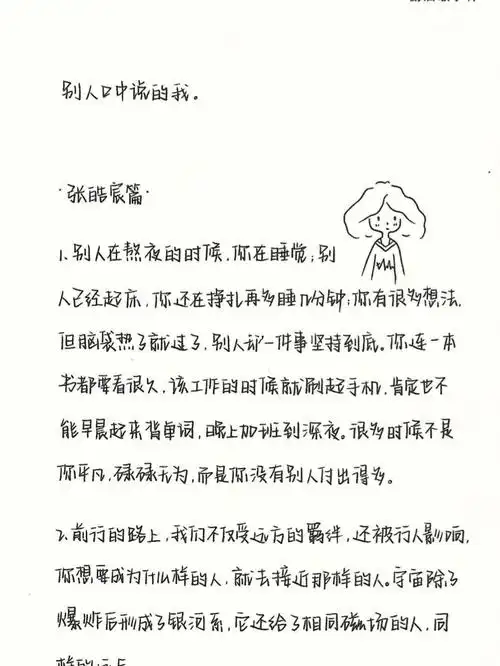 别人口中说的我。
·张皓宸篇·
1、别人在熬夜的时候，你在睡觉；别
人已经起床，你还在挣扎再多睡几分钟；你有很多想法，
但脑袋热了就过了，别人却一件事坚持到底。你连一本
书都要看很久，该工作的时候就刷起手机，肯定也不
能早晨起来背单词，晚上加班到深夜。很多时候不是
你平凡，碌碌无为，而是你没有别人付出得多。
2、前行的路上，我们不仅受远方的羁绊，还被行人影响，
你想要成为什么样的人，就去接近那样的人。宇宙除了
爆炸后形成了银河系，它还给了相同磁场的人，同